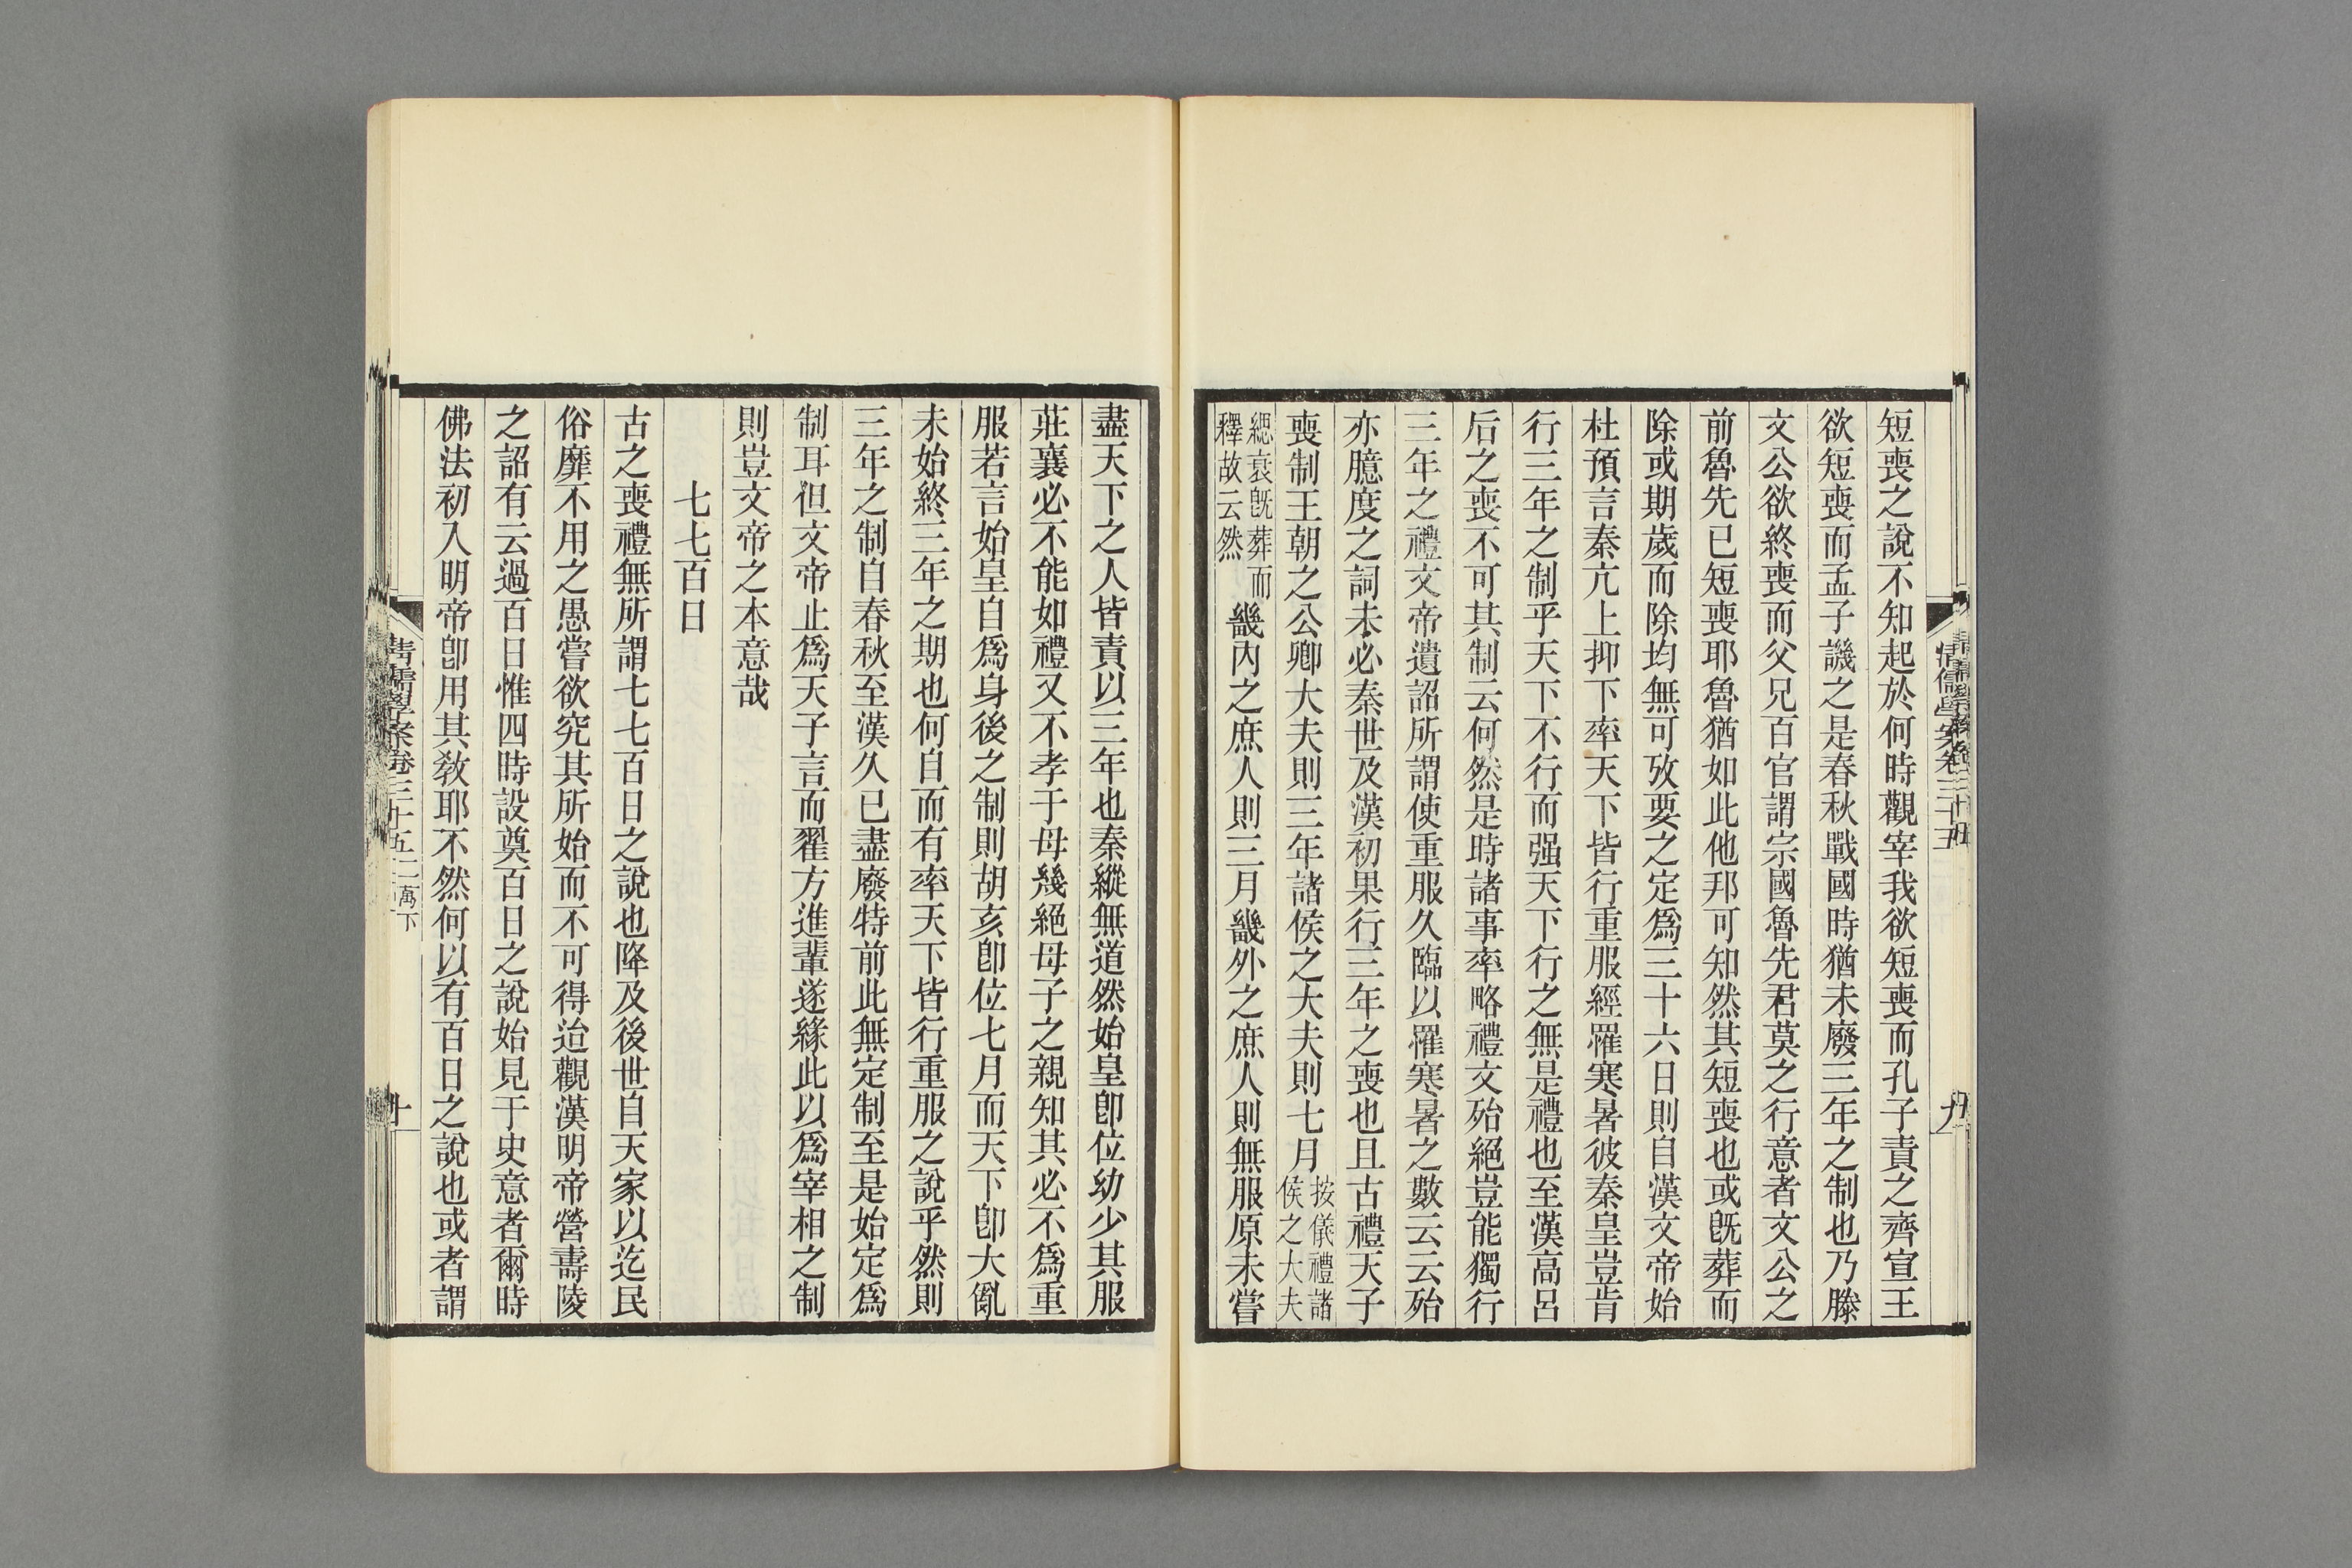 短喪之說不知起於何時觀宰我欲短喪而孔子責之齊宣王
欲短喪而孟子譏之是春秋戰國時猶未廢三年之制也乃滕
文公欲終喪而父兄百官謂宗國魯先君莫之行意者文公之
前魯先已短喪耶魯猶如此他邦可知然其短喪也或旣葬而
除或期歲而除均無可攷要之定爲三十六日則自漢文帝始
杜預言秦亢上抑下率天下皆行重服經罹寒暑彼秦皇豈肯
行三年之制乎天下不行而强天下行之無是禮也至漢高呂
后之喪不可其制云何然是時諸事率略禮文殆絕豈能獨行
三年之禮文帝遺詔所謂使重服久臨以罹寒暑之數云云殆
亦臆度之詞未必秦世及漢初果行三年之喪也且古禮天子
喪制王朝之公卿大夫則三年諸侯之大夫則七月按儀禮諸侯之大夫
緦衰旣葬而釋故云然畿內之庶人則三月畿外之庶人則無服原未嘗
清儒學案卷三十五
九
盡天下之人皆責以三年也秦縱無道然始皇卽位幼少其服
莊襄必不能如禮又不孝于母幾絕母子之親知其必不爲重
服若言始皇自爲身後之制則胡亥卽位七月而天下卽大亂
未始終三年之期也何自而有率天下皆行重服之說乎然則
三年之制自春秋至漢久已盡廢特前此無定制至是始定爲
制耳但文帝止爲天子言而翟方進輩遂緣此以爲宰相之制
則豈文帝之本意哉
七七百日
古之喪禮無所謂七七百日之說也降及後世自天家以迄民
俗靡不用之愚嘗欲究其所始而不可得迨觀漢明帝營壽陵
之詔有云過百日惟四時設奠百日之說始見于史意者爾時
佛法初入明帝卽用其敎耶不然何以有百日之說也或者謂
清儒學案卷三十五二萬下
十